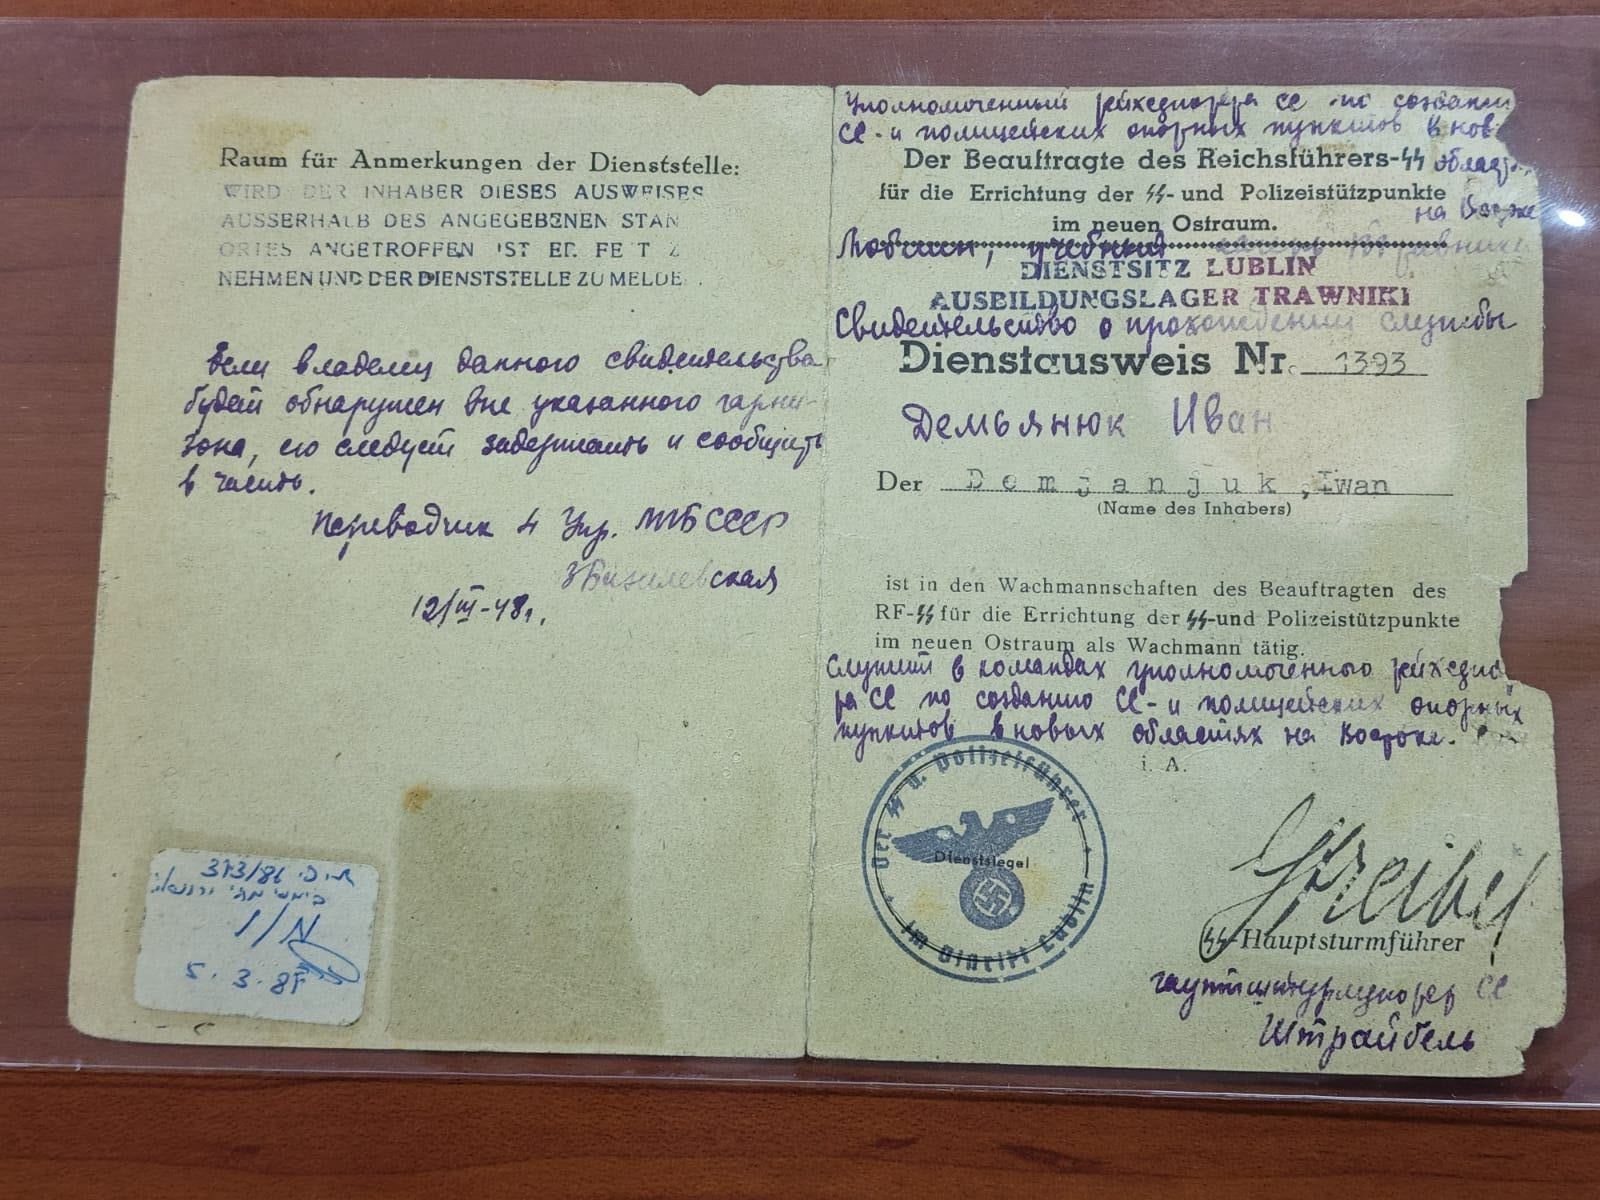 Raum für Anmerkungen der Dienststelle:
WIRD DER INHABER DIESES AUSWEISES
AUSSERHALB DES ANGEGEBENEN STAN
ORTES ANGETROFFEN IST ER FE T Z
NEHMEN UND DER DIENSTSTELLE ZU MELDE .
Если владелец данного свидетельства
будет обнаружен вне указанного гарни-
зона, его следует задержать и сообщить
в часть.
Переводчик 4 Упр. МГБ СССР
Базилевская
12/III-48г.
373/86
1/ת
5.3.87
Уполномоченный рейхсфюрера СС по создани
СС - и полицейских опорных пунктов в нов
Der Beauftragte des Reichsführers-SS
област
für die Errichtung der SS- und Polizeistützpunkte
на Востоке
im neuen Ostraum.
Люблин, учебный
DIENSTSITZ LUBLIN
AUSBILDUNGSLAGER TRAWNIKI
Свидетельство о прохождении службы
Dienstausweis Nr. 1393
Демьянюк Иван
Der Demjanjuk, Iwan
(Name des Inhabers)
ist in den Wachmannschaften des Beauftragten des
RF-SS für die Errichtung der SS-und Polizeistützpunkte
im neuen Ostraum als Wachmann tätig.
Служит в командах уполномоченного рейхсфю
ра СС по созданию СС - и полицейских опорных
пунктов в новых областях на Востоке.
i. A.
Der SS u. Polizeiführer
im Distrikt Lublin
Dienstsiegel
Streibel
SS-Hauptsturmführer
гауптштурмфюрер СС
Штрайбель